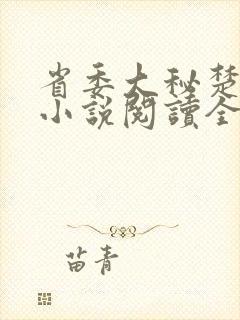 省委大秘楚
小說閱讀全
苗青